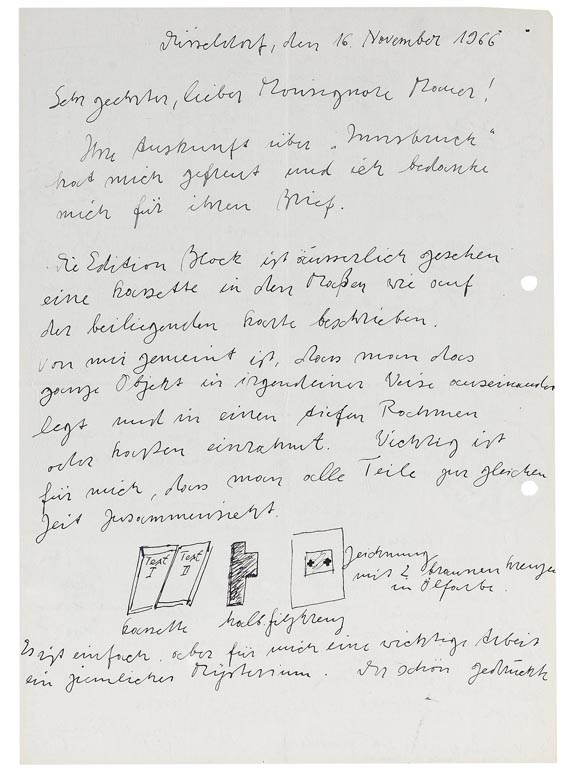 Düsseldorf, den 16. November 1966
Sehr geehrter, lieber Monsignore Mauer!
Ihre Auskunft über „Innsbruck“
hat mich gefreut und ich bedanke
mich für ihren Brief.
Die Edition Block ist äusserlich gesehen
eine Kassette in den Maßen wie auf
der beiliegenden Karte beschrieben.
von mir gemeint ist, dass man das
ganze Objekt in irgendeiner Weise auseinander
legt und in einen tiefen Rahmen
oder Kasten einrahmt. Wichtig ist
für mich, dass man alle Teile zur gleichen
Zeit zusammensieht.
Text I
Text II
Zeichnung
mit 2 braunen Kreuzen
in Ölfarbe.
Kassette
halb. Filzkreuz
Es ist einfach. aber für mich eine wichtige Arbeit
ein ziemliches Mysterium. Der schön gedruckte